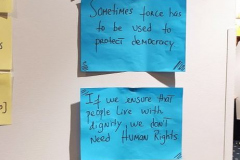 Sometimes force has
to be used to
protect democracy
If we ensure that
people live with
dignity, we don't
need Human Rights